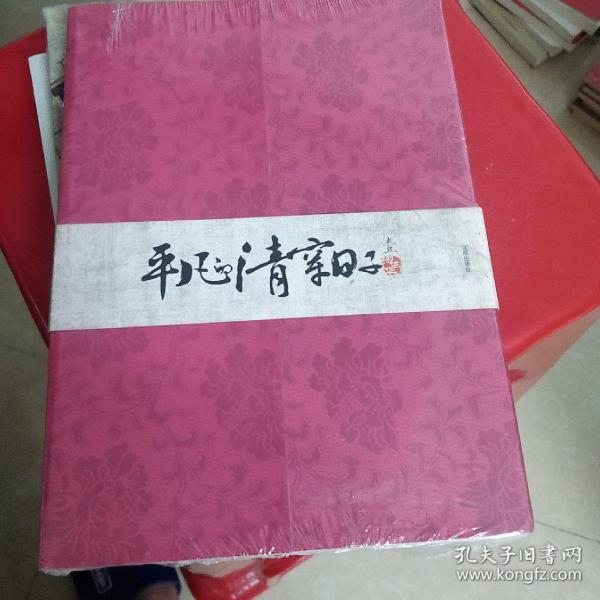 平凡的清穿日子
孔夫子旧书网
www.kongfz.com